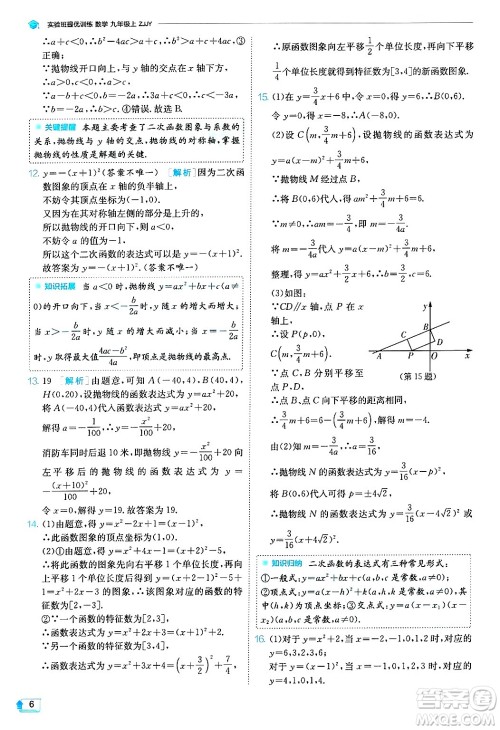 实验班提优训练 数学 九年级上 ZJJY
∴a+c<0,∴2b>a+c,∴③
正确;
∵抛物线开口向上,与y轴的交点在x轴下方,
∴a>0,c<0,∴a>c.
∵a-b+c<0,b=-2a,∴3a+c<0,∴c<-3a,
∴b=-2a,∴b>c,④错误.故选C.
关键提醒 本题主要考查了二次函数图象与系数的
关系,抛物线与y轴的交点,抛物线的对称轴,掌握
抛物线的性质是解题的关键.
12. y=-(x+1)²(答案不唯一) [解析]因为二次函
数图象的顶点在x轴的负半轴上,
不妨令其顶点坐标为(-1,0).
又因为其对称轴左侧的部分上升,所以a<0.
不妨令a的值为-1.
所以这个二次函数的表达式可以为y=-(x+1)².
故答案为y=-(x+1)²(答案不唯一).
知识拓展 当a<0时,抛物线y=ax²+bx+c(a≠
0)的开口向下,x<-b/2a时,y随x的增大而增大;
当x>-b/2a时,y随x的增大而减小;x=-b/2a
时,y取得最大值(4ac-b²)/4a,即顶点是抛物线的最高点.
13. 19 [解析]由题意,可知A(-40,4),B(40,4),
H(0,20),设抛物线的函数表达式为y=ax²+20,
将A(-40,4)代入函数表达式y=ax²+20,得1600a+20=4,
解得a=-1/100,∴y=-x²/100+20,
消防车同时后退10米,即抛物线y=-x²/100+20向
左平移后的抛物线的函数表达式为y=
-(x+10)²/100+20,令x=0,解得y=19.
14. (1)由题意,得y=x²-2x+1=(x-1)²,
∴此函数图象的顶点坐标为(1,0).
(2)①由题意,得y=x²+4x-1=(x+2)²-5,
∴将此函数的图象先向右平移1个单位长度,再
向上平移1个单位长度后,得y=(x+2-1)²-
5+1=(x+1)²-4=x²+2x-3,
∴图象对应的函数的特征数为[2,-3].
②∵一个函数的特征数为[2,3],
∴函数表达式为y=x²+2x+3=(x+1)²+2.
∵一个函数的特征数为[3,4],
∴函数表达式为y=x²+3x+4=(x+3/2)²+7/4,
∴原函数图象向左平移1/2个单位长度,再向下平移
1/4个单位长度就得到特征数为[3,4]的新函数图象.
15. (1)在y=3/4x+6中,令x=0,得y=6;令y=0,得x=-8,
∴A(-8,0),B(0,6).
(2)设C(m,3/4m+6),设抛物线的函数表达式为
y=a(x-m)²+3/4m+6,
∵抛物线M经过点B,
∴将B(0,6)代入,得am²+3/4m+6=6.
∵m≠0,∴am=-3/4,即m=-3/4a,
∴将m=-3/4a代入y=a(x-m)²+3/4m+6,
整理,得y=ax²+3/2x+6,∴b=3/2,c=6.
(3)如图:
∵CD//x轴,点P在x
轴上,
∴设P(p,0),
C(m,3/4m+6),
(第15题)
∵点C,B分别平移
至点P,D,
∴点B,点C向下平移的距离相同,
∴3/4m+6=6-(3/4m+6),解得m=-4.
由(2)知m=-3/4a,∴a=3/16,
∴抛物线N的函数表达式为y=3/16(x-p)²,
将B(0,6)代入可得p=±4√2,
∴抛物线N的函数表达式为y=3/16(x-4√2)²
或y=3/16(x+4√2)².
知识归纳 二次函数的表达式有三种常见形式:
①一般式:y=ax²+bx+c(a,b,c是常数,a≠0);
②顶点式:y=a(x-h)²+k(a,h,k是常数,a≠0),其
中(h,k)为顶点坐标;③交点式:y=a(x-x₁)(x-
x₂)(a,x₁,x₂是常数,a≠0).
16. (1)对于y=x,当x=-1,0,1,2,3时,y=-1,
0,1,2,3.
对于y=x²,当x=-1,0,1,2,3时,y=1,0,1,4,9.
6